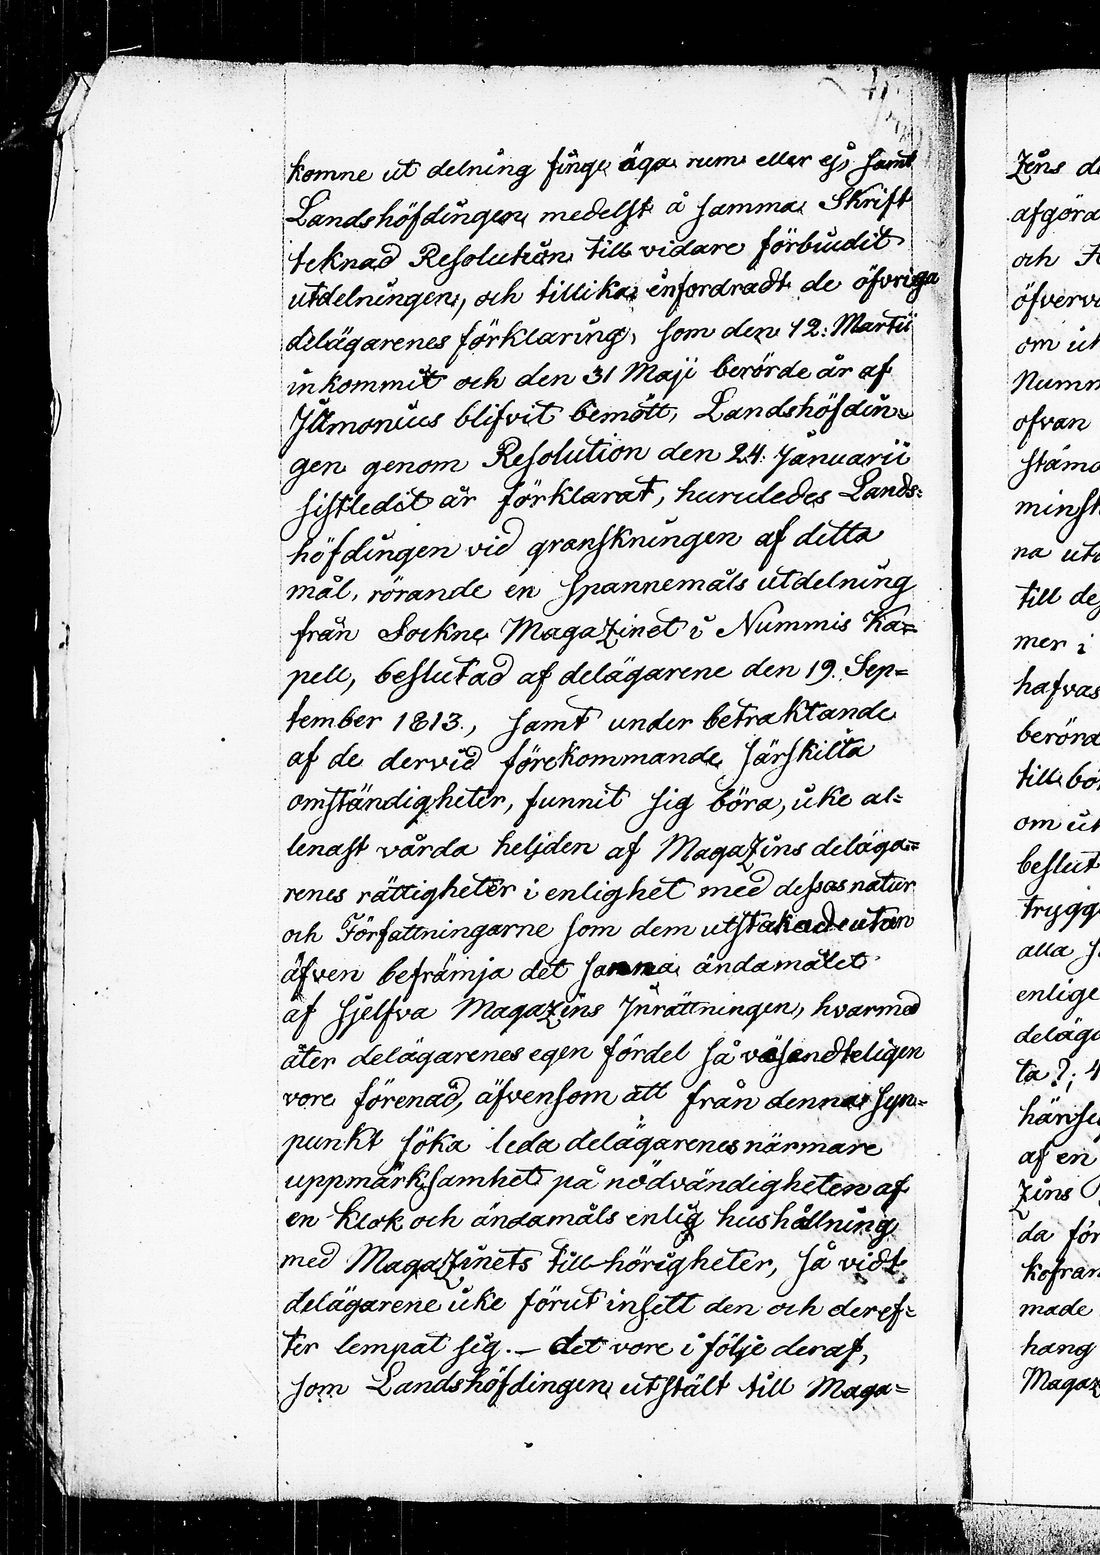 komne utdelning finge äga rum eller ej, samt
Landshöfdingen medelst å samma Skrift
teknad Resolution till vidare förbudit
utdelningen, och tillika infordradt de öfvriga
delägarenes förklaring, som den 12: Martii
inkommit och den 31 Maji berörde år af
Ilmonius blifvit bemött, Landshöfdin-
gen genom Resolution den 24: Januarii
sistledit år förklarat, huruledes Lands-
höfdingen vid granskningen af detta
mål, rörande en spannemåls utdelning
från Sockne Magazinet i Nummis Ka=
pell, beslutad af delägarene den 19. Sep=
tember 1813., samt under betraktande
af de dervid förekommande särskilta
omständigheter, funnit sig böra, icke al=
lenast vårda helgden af Magazins deläga=
renes rättigheter i enlighet med dessas natur
och Författningarne som dem utstakade utan
äfven befrämja det sanna ändamålet
af sjelfva Magazins Inrättningen, hvarmed
åter delägarenes egen fördel så väsendteligen
vore förenad, äfvensom att från denna syn=
punkt söka leda delägarenes närmare
uppmärksamhet på nödvändigheten af
en klok och ändamåls enlig hushållning
med Magazinets till-hörigheter, så vidt
delägarene icke förut insett den och deref=
ter lempat sig. — det vore i följe deraf,
som Landshöfdingen utstält till Maga=
Zins
afgöra
och
öfver
om
Numm
ofvan
minst
na
till
mer i
hafvas
berörd
till
om
beslut
trygg
alla
enlige
deläg
ta ?;
af en
Zins
da för
made
hang
Magaz